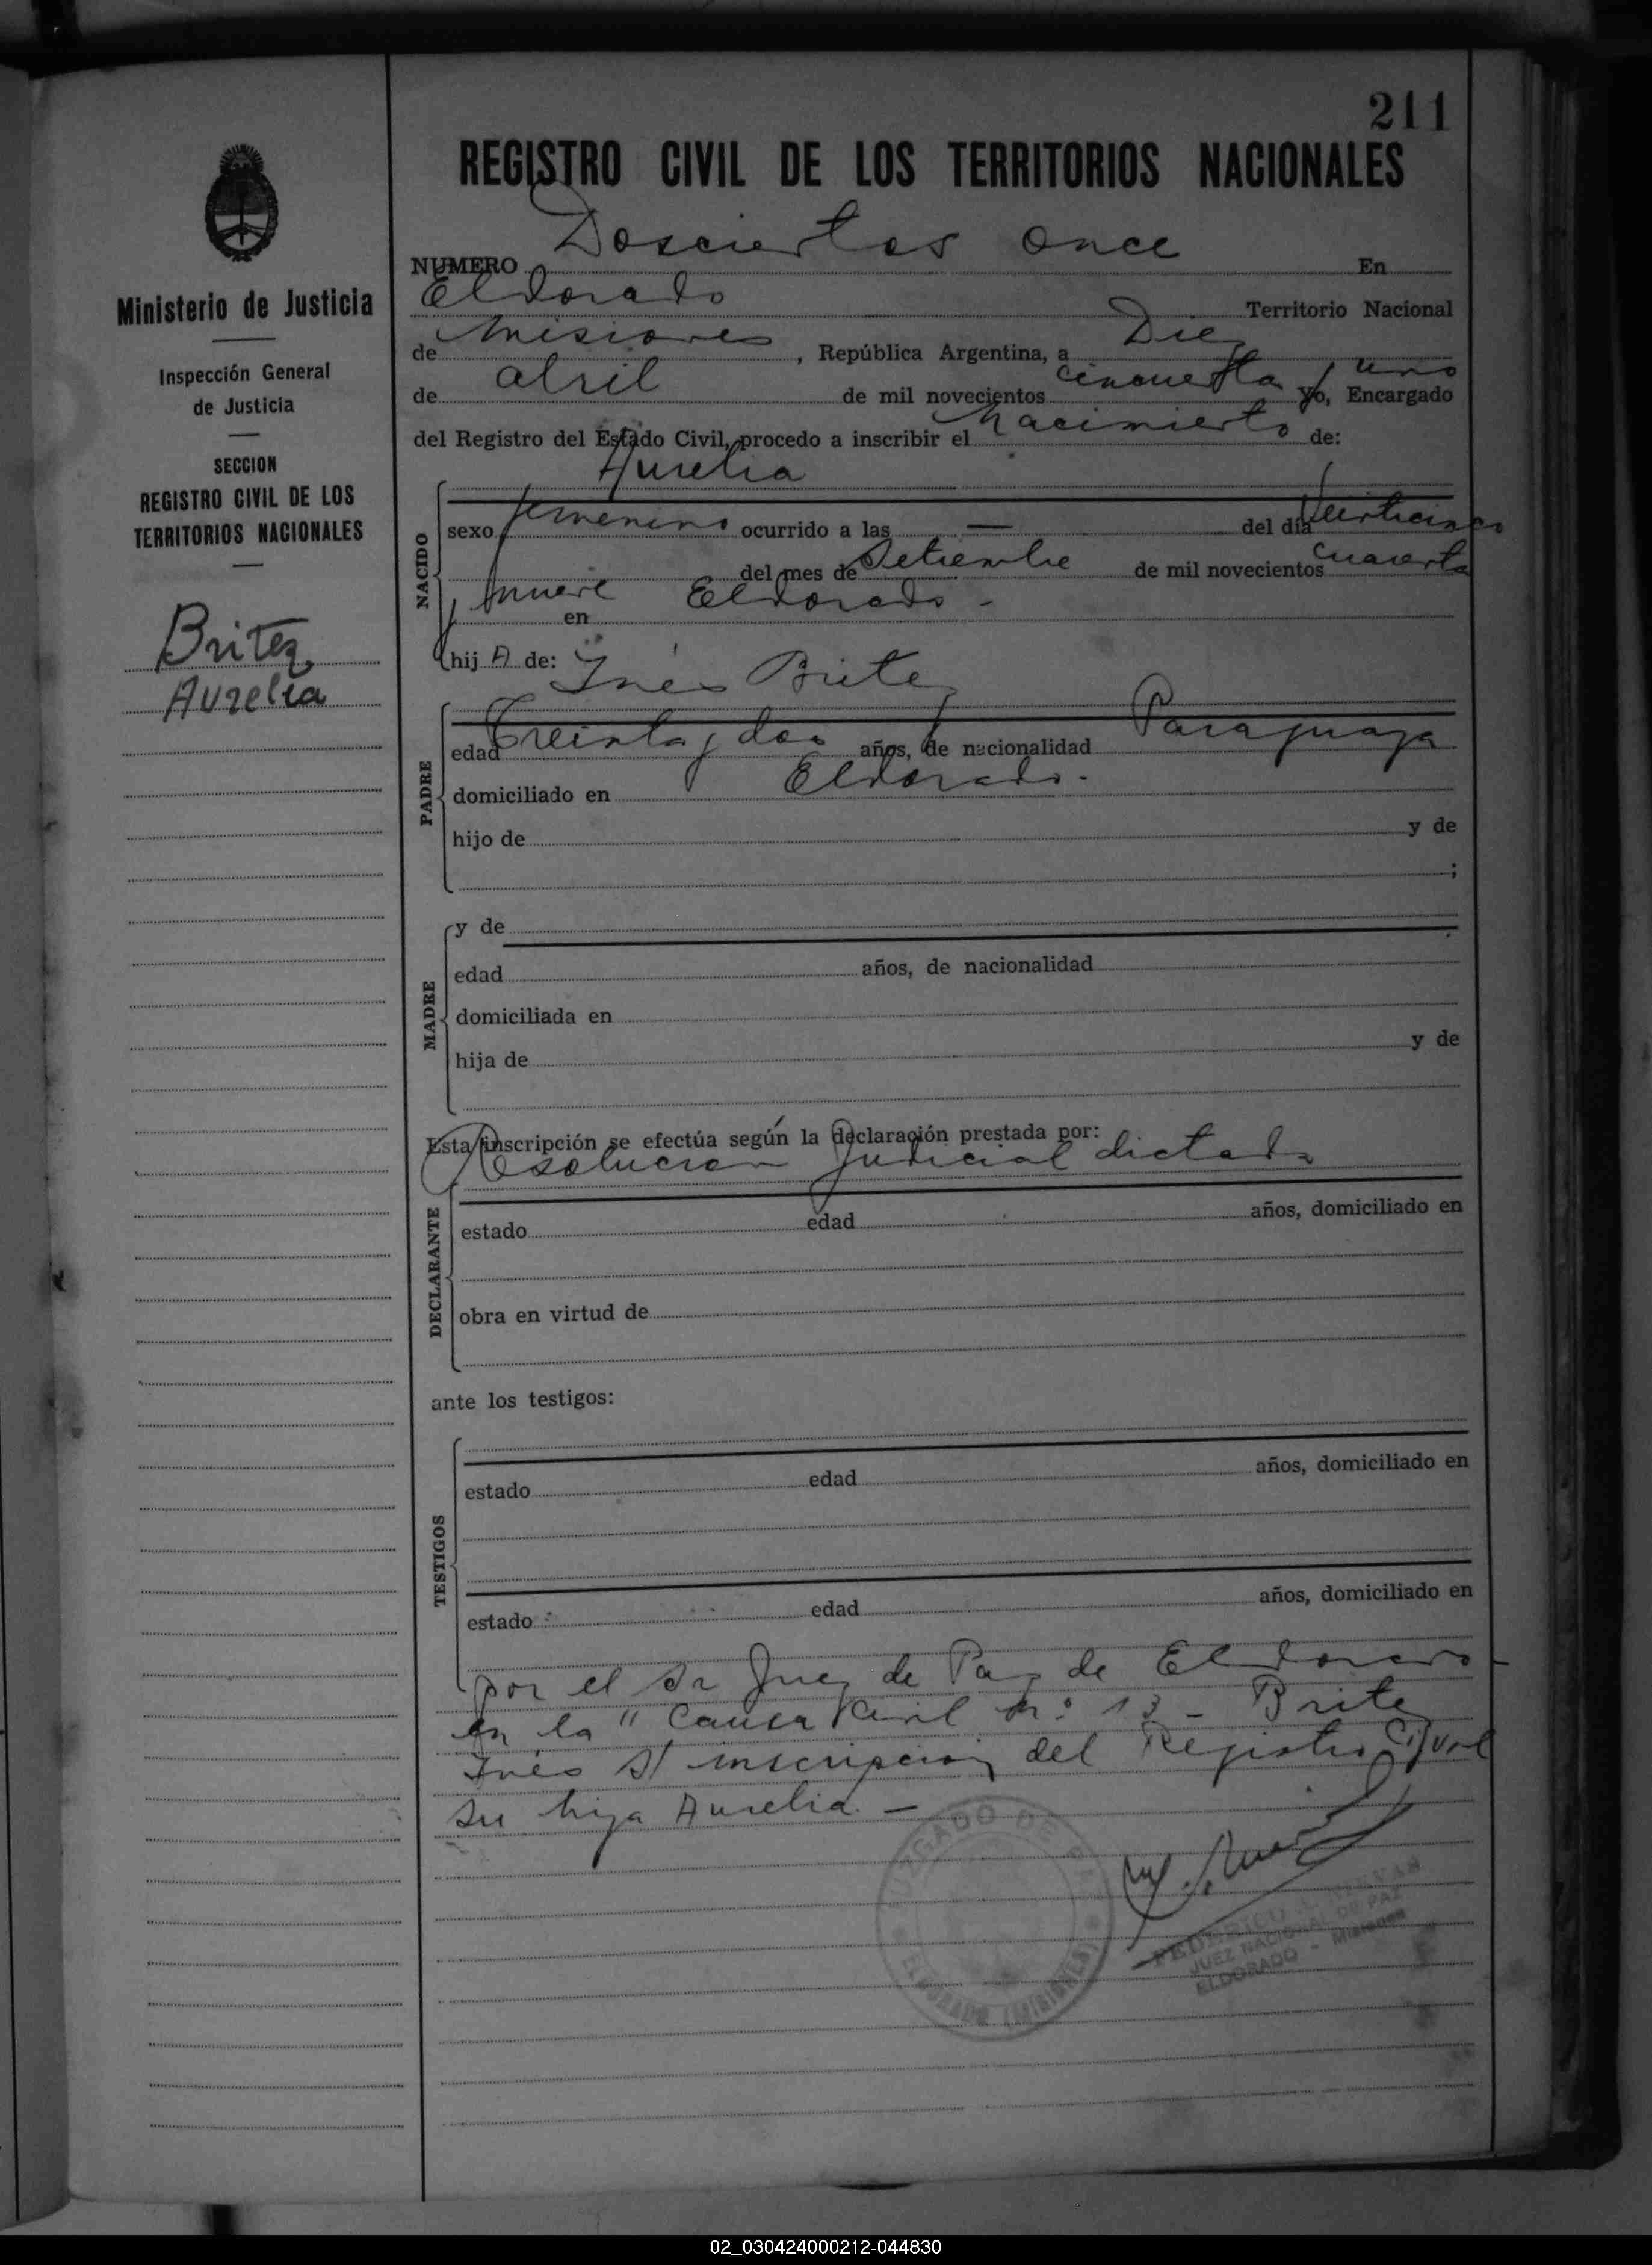 211
REGISTRO CIVIL DE LOS TERRITORIOS NACIONALES
Ministerio de Justicia
Inspección General
de Justicia
SECCION
REGISTRO CIVIL DE LOS
TERRITORIOS NACIONALES
Britez
Aurelia
NUMERO Doscientos once En
Eldorado Territorio Nacional
de Misiones, República Argentina, a Diez
de abril de mil novecientos cincuenta y uno yo, Encargado
del Registro del Estado Civil, procedo a inscribir el Nacimiento de:
Aurelia
NACIDO
sexo femenino ocurrido a las — del día Veinticinco
del mes de Setiembre de mil novecientos cuarenta
y nueve en Eldorado -
hij A de: Inés Britez
PADRE
edad Treinta y dos años, de nacionalidad Paraguaya
domiciliado en Eldorado.
hijo de y de
;
MADRE
y de
edad años, de nacionalidad
domiciliada en
hija de y de
Esta inscripción se efectúa según la declaración prestada por:
Resolucion Judicial dictada
DECLARANTE
estado edad años, domiciliado en
obra en virtud de
ante los testigos:
TESTIGOS
estado edad años, domiciliado en
estado edad años, domiciliado en
por el Sr Juez de Paz de Eldorado -
en la "Causa Civil Nº 13 - Britez
Inés S/ inscripcion del Registro Civil
su hija Aurelia. —
JUZGADO DE PAZ
ELDORADO (MISIONES)
FEDERICO
JUEZ NACIONAL DE PAZ
ELDORADO - Misiones
02_030424000212-044830